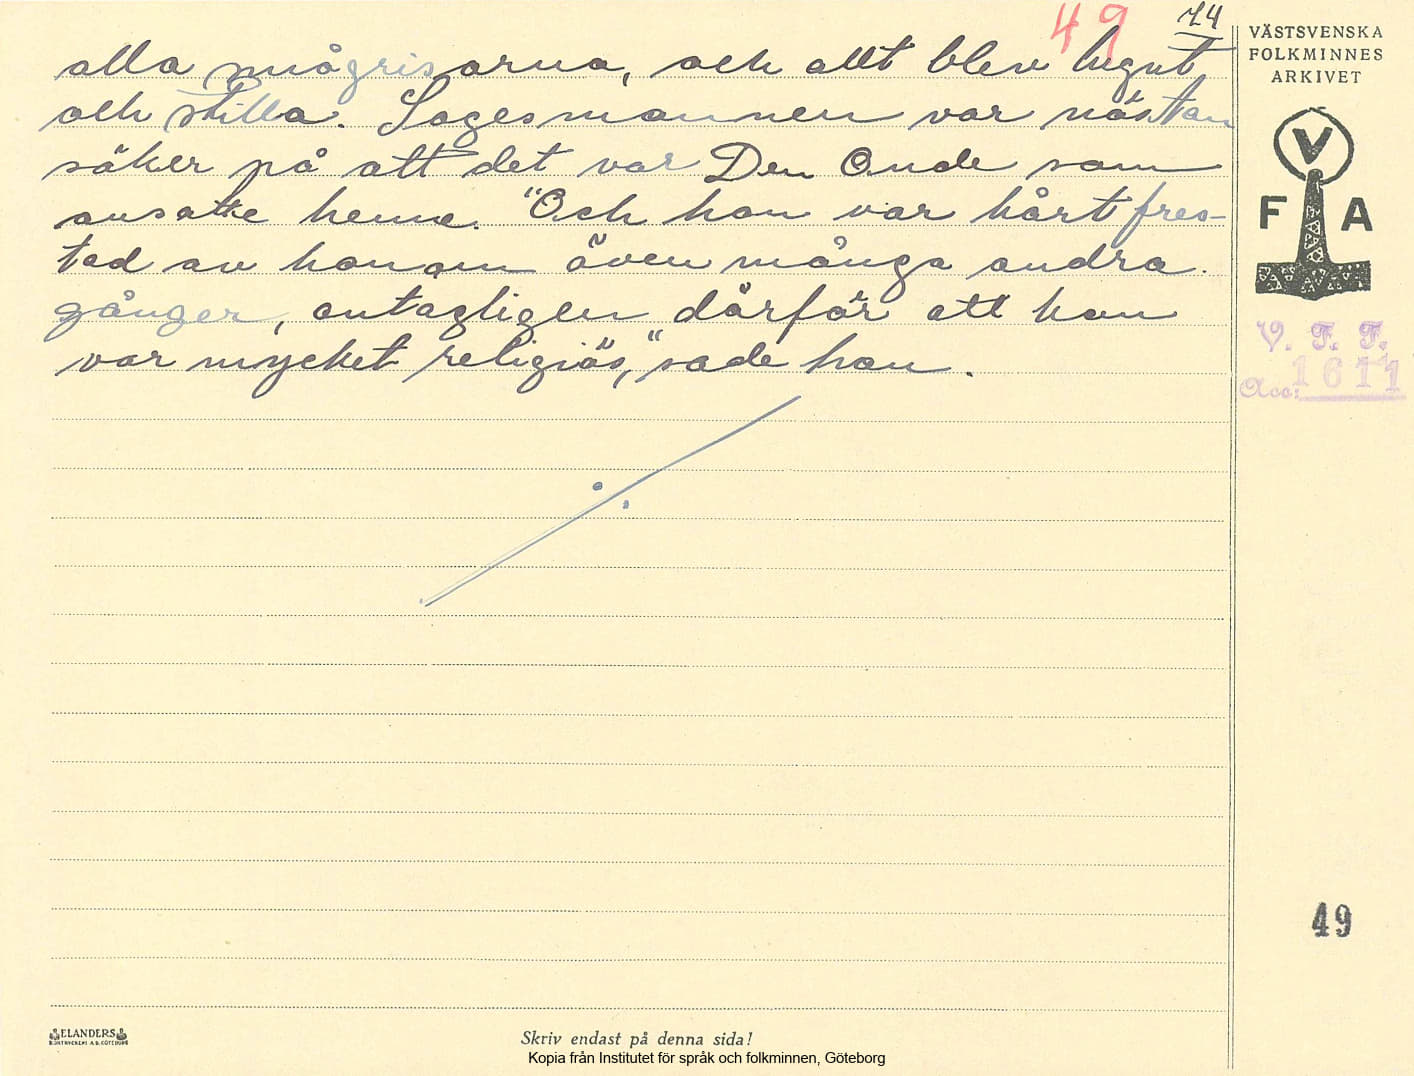 49
74
alla smågrisarna, och allt blev lugnt
och stilla. Sagesmannen var nästan
säker på att det var Den Onde som
ansatte henne. "Och hon var hårt fres-
tad av honom även många andra
gånger, antagligen därför att hon
var mycket religiös," sade han.
VÄSTSVENSKA
FOLKMINNES
ARKIVET
V
F A
V. F. F.
Acc: 1611
49
ELANDERS
BOKTRYCKERI A.B. GÖTEBORG
Skriv endast på denna sida!
Kopia från Institutet för språk och folkminnen, Göteborg